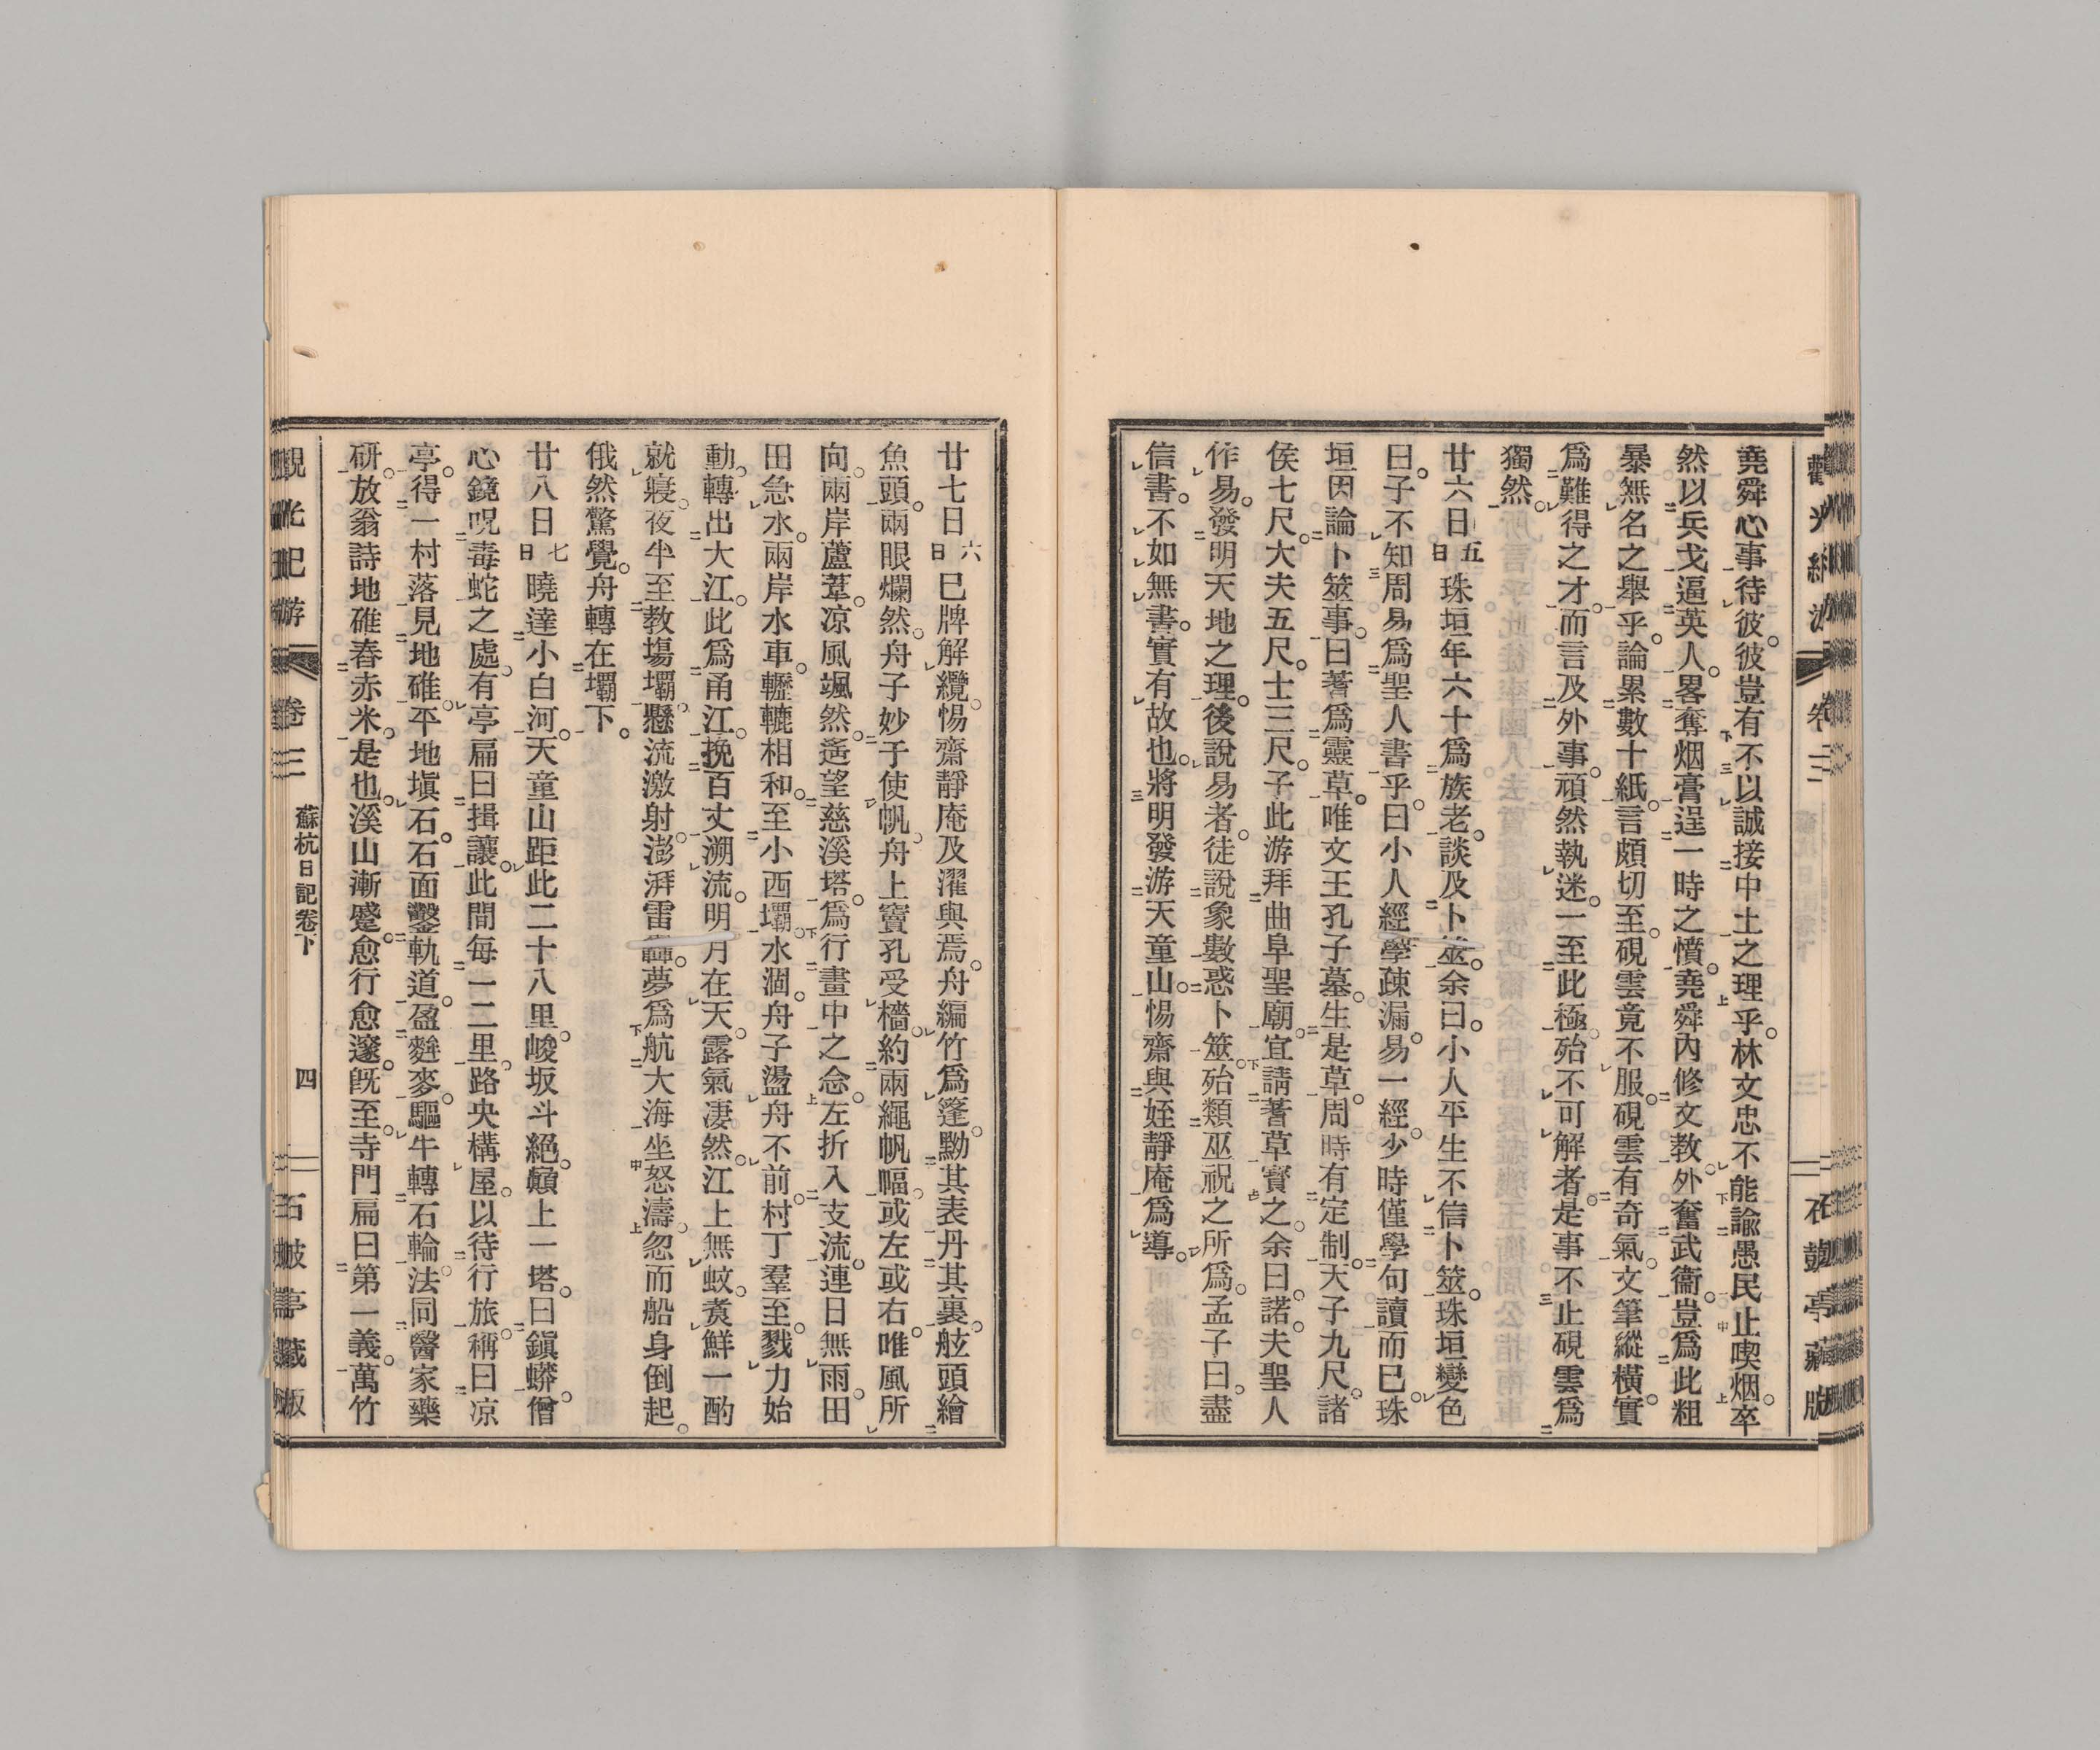 堯舜心事待彼。彼豈有不以誠接中土之理乎。林文忠不能諭愚民止喫烟。卒
然以兵戈逼英人。畧奪烟膏逞一時之憤。堯舜內修文教。外奮武衞。豈爲此粗
暴無名之舉乎。論累數十紙。言頗切至。硯雲竟不服。硯雲有奇氣。文筆縱橫。實
爲難得之才。而言及外事。頑然執迷。一至此極。殆不可解者。是事不止硯雲爲
獨然。
廿六日五日珠垣年六十爲族老。談及卜筮。余曰。小人平生不信卜筮。珠垣變色
曰。子不知周易爲聖人書乎。曰小人經學疎漏。易一經。少時僅學句讀而已。珠
垣因論卜筮事。曰蓍爲靈草。唯文王孔子墓。生是草。周時有定制。天子九尺。諸
侯七尺。大夫五尺。士三尺。子此游拜曲阜聖廟。宜請蓍草寳之。余曰諾。夫聖人
作易。發明天地之理。後說易者。徒說象數惑卜筮。殆類巫祝之所爲。孟子曰。盡
信書。不如無書。實有故也。將明發游天童山。惕齋與姪靜庵爲導。
廿七日六日巳牌解纜。惕齋靜庵及濯與焉。舟編竹爲篷。黝其表。丹其裏。舷頭繪
魚頭。兩眼爛然。舟子妙于使帆。舟上竇孔受檣。約兩繩帆幅。或左或右。唯風所
向。兩岸蘆葦。凉風颯然。遙望慈溪塔。爲行畫中之念。左折入支流。連日無雨。田
田急水。兩岸水車。轣轆相和。至小西壩。水涸。舟子盪舟不前。村丁羣至。戮力始
動。轉出大江。此爲甬江。挽百丈溯流。明月在天。露氣凄然。江上無蚊。煑鮮一酌
就寢。夜半至教塲壩。懸流激射。澎湃雷轟。夢爲航大海坐怒濤。忽而船身倒起。
俄然驚覺。舟轉在壩下。
廿八日七日曉達小白河。天童山距此二十八里。峻坂斗絕。顚上一塔。曰鎭蟒。僧
心鏡呪毒蛇之處。有亭扁曰揖讓。此間每一二里。路央構屋。以待行旅。稱曰凉
亭。得一村落。見地碓。平地塡石。石面鑿軌道。盈麰麥。驅牛轉石輪。法同醫家藥
研。放翁詩地碓舂赤米。是也。溪山漸蹙。愈行愈邃。旣至。寺門扁曰第一義。萬竹
觀光紀游
卷三
蘇杭日記卷下
四
石鼓亭藏版